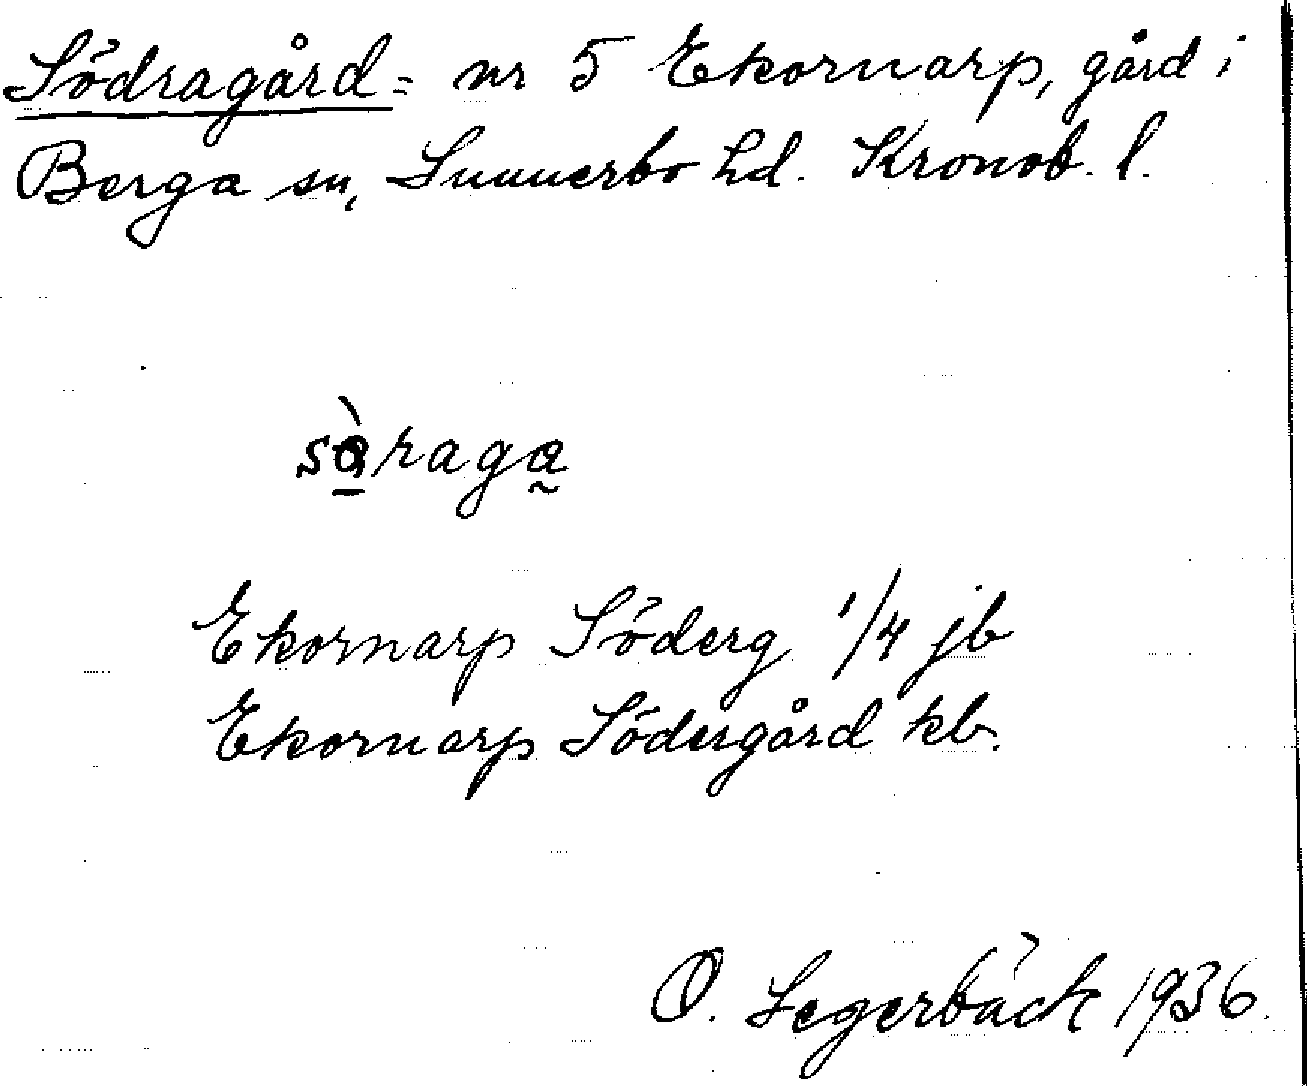 Södragård = nr 5 Ekornarp, gård i
Berga sn, Sunnerbo hd. Kronob. l.
sòraga
Ekornarp Söderg 1/4 jb
Ekornarp Södergård kb.
O. Segerbäck 1936.